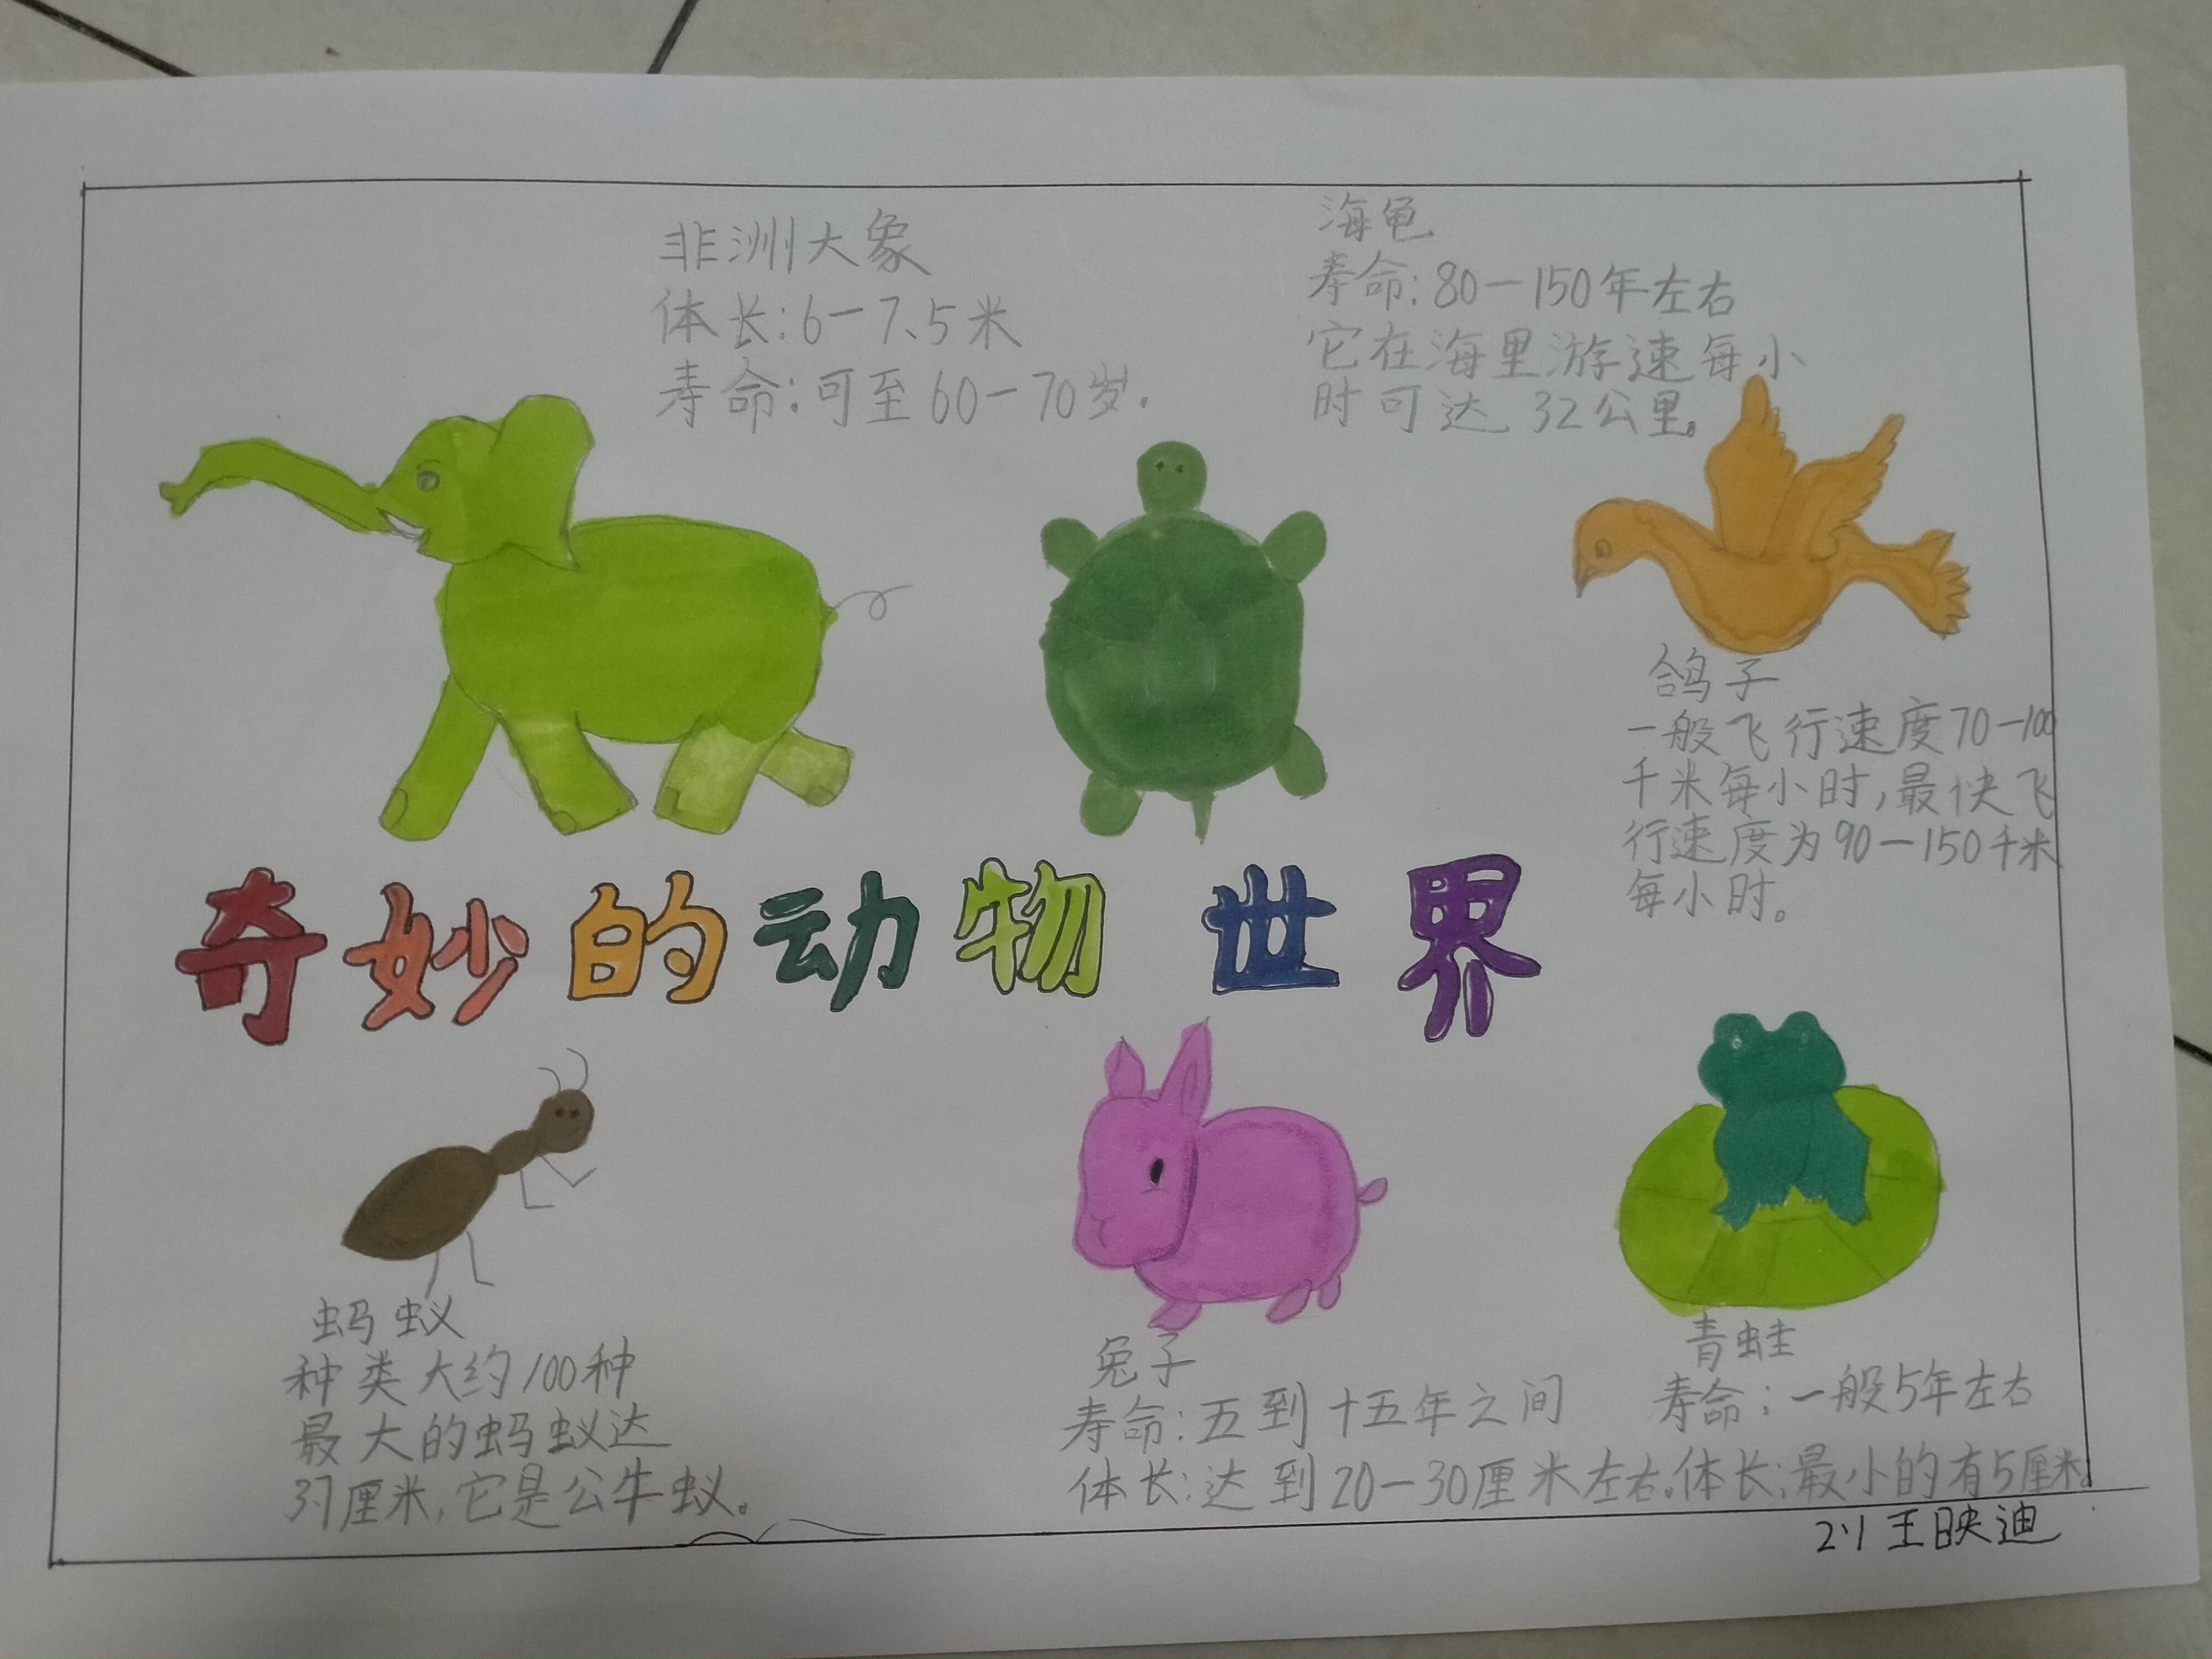 非洲大象
体长:6-7.5米
寿命:可至60-70岁.
海龟
寿命:80-150年左右
它在海里游速每小
时可达32公里。
鸽子
一般飞行速度70-100
千米每小时,最快飞
行速度为90-150千米
每小时。
奇妙的动物世界
蚂蚁
种类大约100种
最大的蚂蚁达
37厘米,它是公牛蚁。
兔子
寿命:五到十五年之间
体长:达到20-30厘米左右。
青蛙
寿命:一般5年左右
体长:最小的有5厘米。
2.1 王映迪